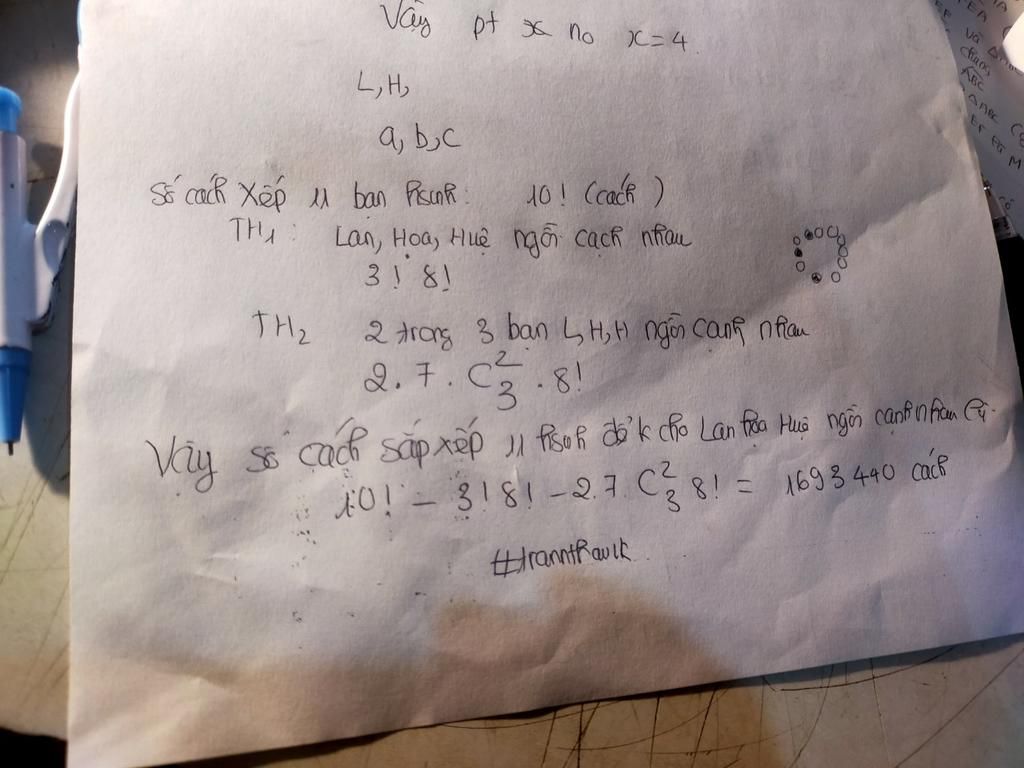 Vậy pt x no x=4.
L, H,
a, b, c
Số cách xếp 11 bạn hsinh: 10! (cách)
TH1: Lan, Hoa, Huệ ngồi cạch nhau
3! 8!
TH2 2 trong 3 bạn L, H, H ngồi cạnh nhau
2.7.C²₃.8!
Vậy số cách sắp xếp 11 hsinh để k cho Lan Hoa Huệ ngồi cạnh nhau là:
10! - 3!8! - 2.7.C²₃8! = 1693440 cách
EA
và
ABC
ABC
EF